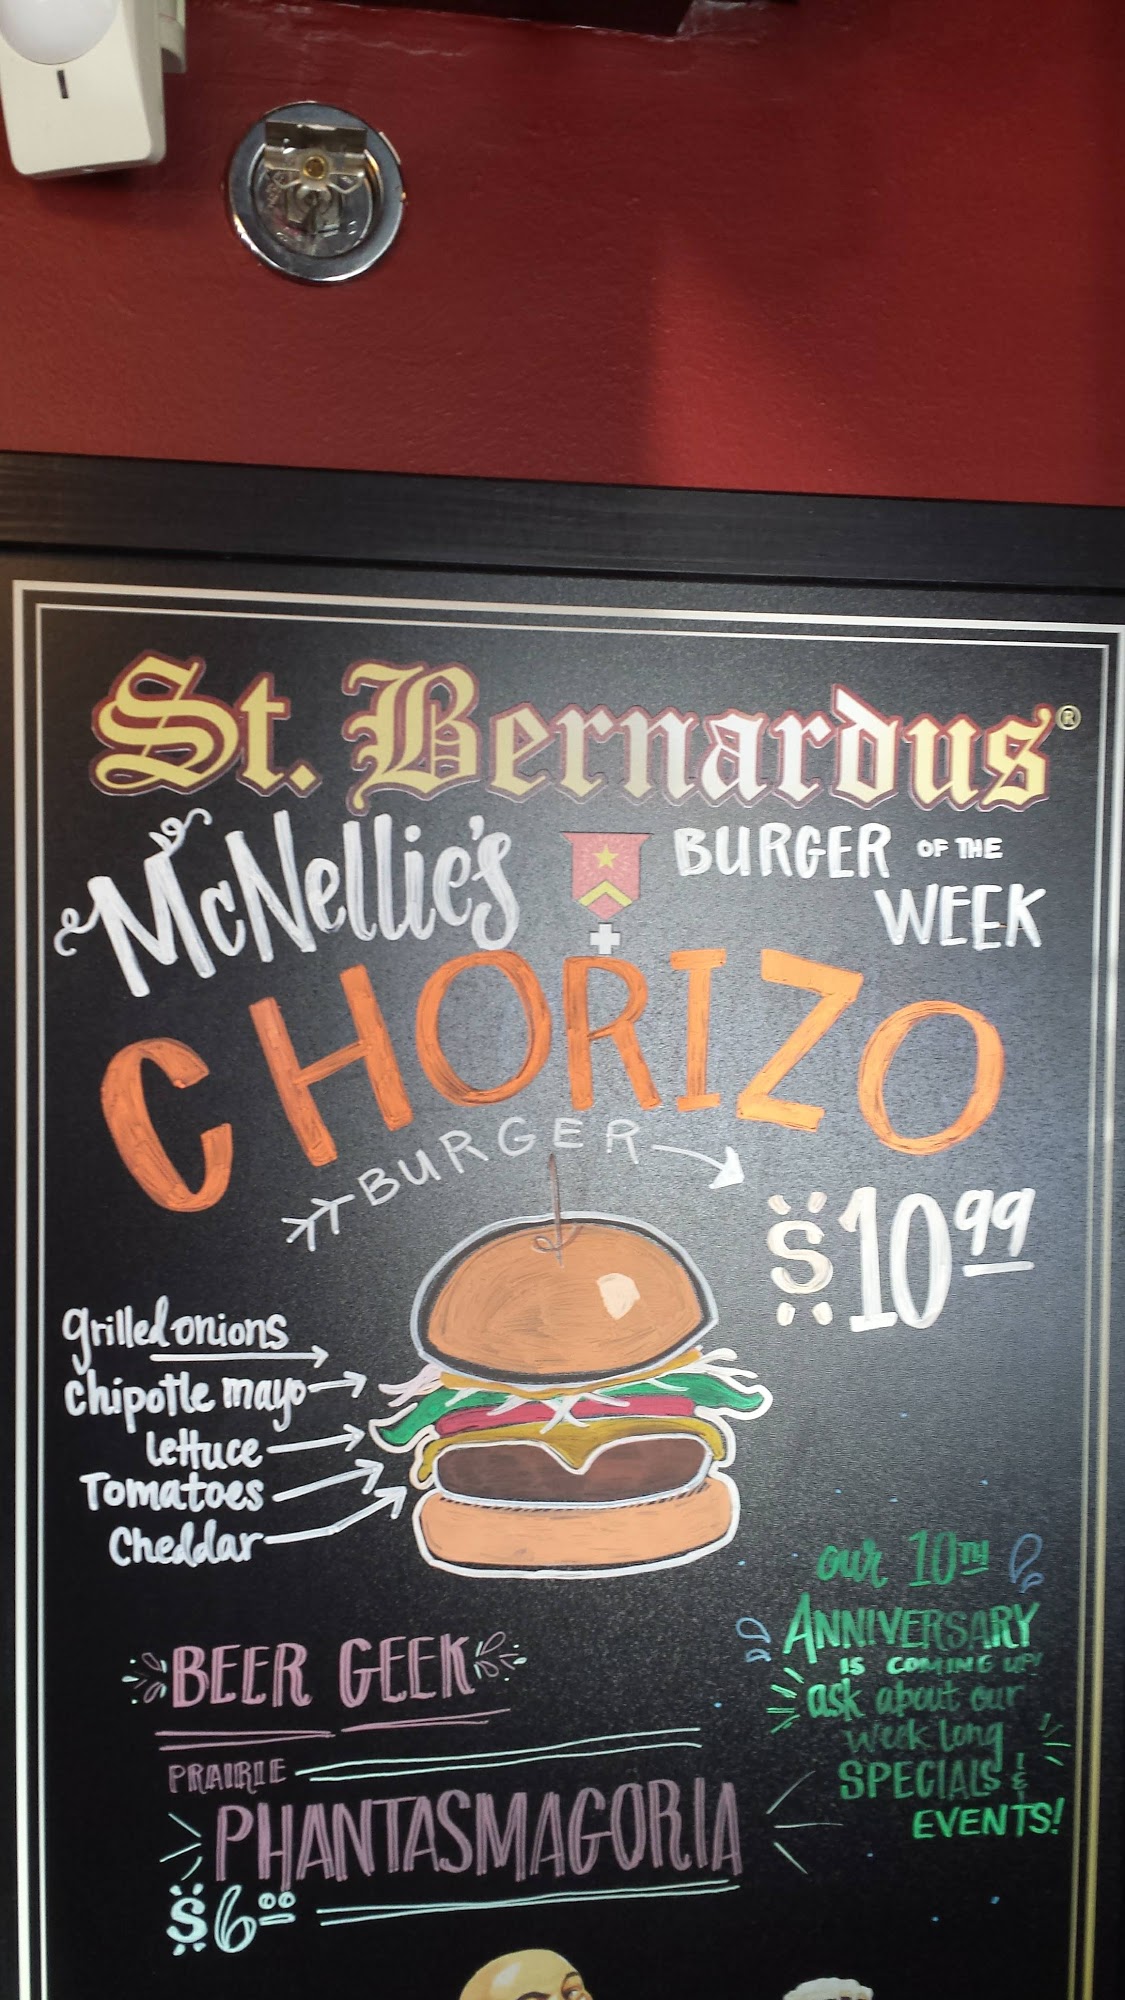 St. Bernardus®
McNellie's
BURGER OF THE
WEEK
CHORIZO
BURGER
$10 99
grilled onions
chipotle mayo
lettuce
Tomatoes
Cheddar
our 10TH
ANNIVERSARY
IS COMING UP!
ask about our
week long
SPECIALS &
EVENTS!
BEER GEEK
PRAIRIE
PHANTASMAGORIA
$6 00